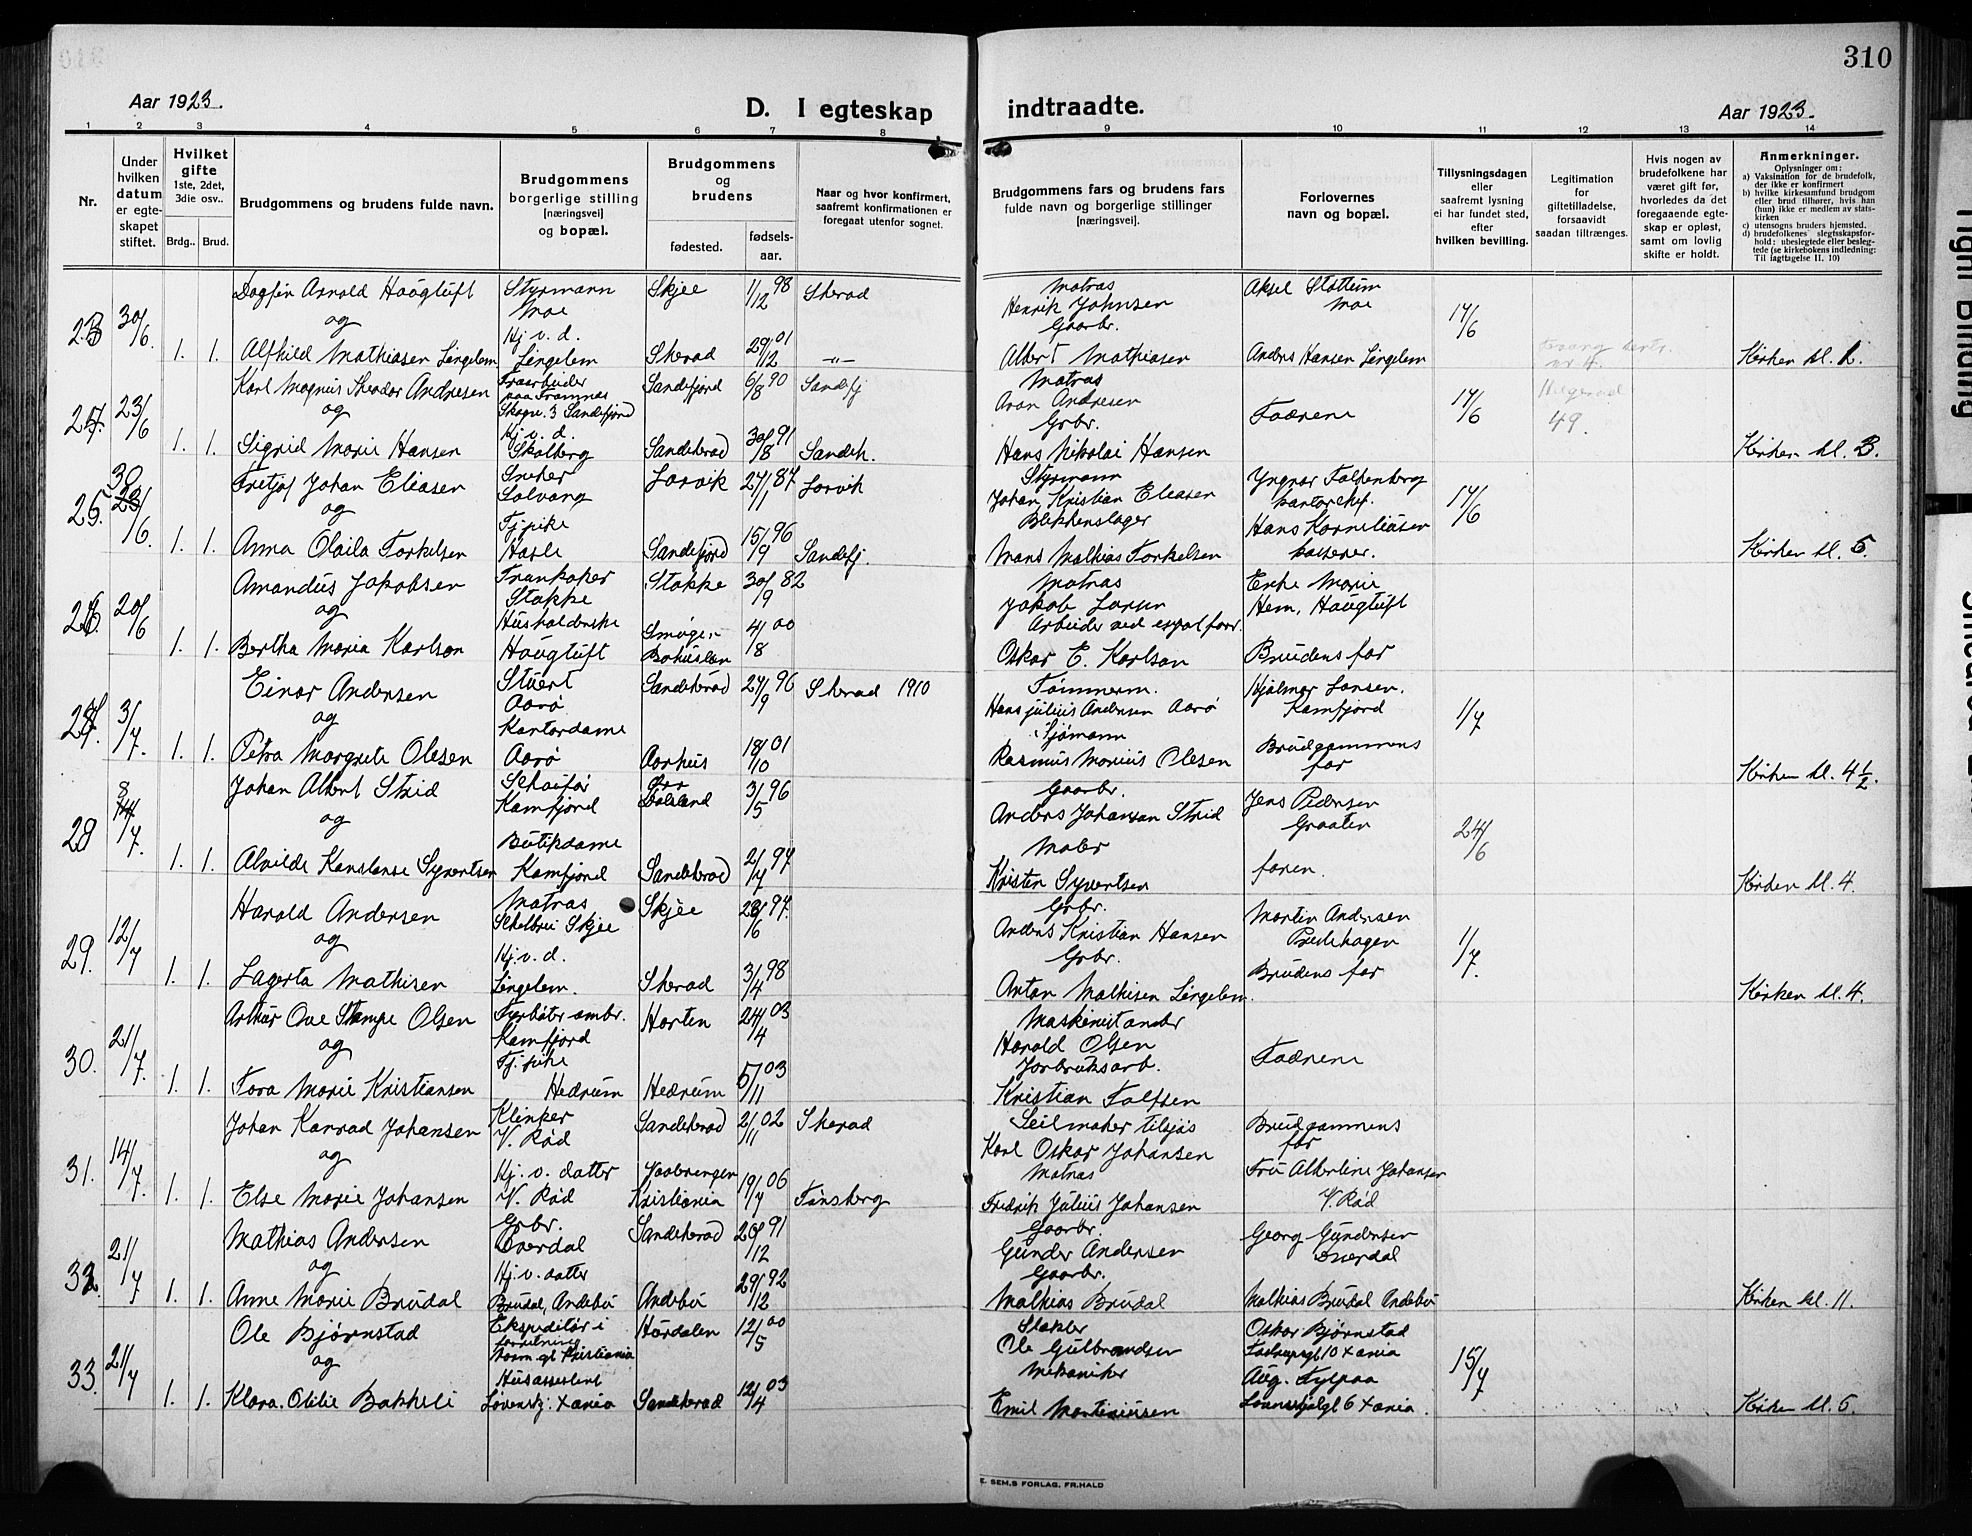 310
Aar 1923.
D. I egteskap indtraadte.
Aar 1923.
1 2 3 4 5 6 7 8 9 10 11 12 13 14
Nr.
Under hvilken datum er egteskapet stiftet.
Hvilket gifte
1ste, 2det, 3die osv..
Brdg.. Brud.
Brudgommens og brudens fulde navn.
Brudgommens borgerlige stilling [næringsvei] og bopæl.
Brudgommens og brudens
fødested.
fødselsaar.
Naar og hvor konfirmert, saafremt konfirmationen er foregaat utenfor sognet.
Brudgommens fars og brudens fars fulde navn og borgerlige stillinger [næringsvei].
Forlovernes navn og bopæl.
Tillysningsdagen eller saafremt lysning ei har fundet sted, efter hvilken bevilling.
Legitimation for giftetilladelse, forsaavidt saadan tiltrænges.
Hvis nogen av brudefolkene har været gift før, hvorledes da det foregaaende egteskap er opløst, samt om lovlig skifte er holdt.
Anmerkninger.
Oplysninger om:
a) Vaksination for de brudefolk, der ikke er konfirmert
b) hvilke kirkesamfund brudgom eller brud tilhører, hvis han (hun) ikke er medlem av statskirken
c) utensogns bruders hjemsted.
d) brudefolkenes slegtsskapsforhold: ubeslegtede eller beslegtede (se kirkebokens indledning: Til iagttagelse II. 10)
23 30/6. 1. 1.
Dagfin Arnold Haugtuft
og
Alfhild Mathiasen Lingelem
Styrmann
Moe
Hj. v. d.
Lingelem
Skjee 1/12 98 Skerad
Skerad 29/12 01 -"-
Matros
Henrik Johnsen
Gaarbr.
Albert Mathiasen
Aksel Stottum
Moe
Anders Hansen Lingelem
17/6
Kirken kl.
24. 23/6 1. 1.
Karl Magnus Theodor Andresen
og
Sigrid Marie Hansen
paa Framnes
Skogv. 3 Sandefjord
Hj. v. d.
Skolberg
Sandefjord 6/8 90 Sandefj
Sandeherad 30/8 91 Sandeh.
Matros
Aron Andresen
Grbr.
Hans Nikolai Hansen
Fædrene
17/6
49.
Kirken kl. 3.
25. 30/6. 1. 1.
Fretjof Johan Eliasen
og
Anna Olaila Torkelsen
Sneker
Solvang
Tj. pike
Hasle
Larvik 27/1 87 Larvik
Sandefjord 15/9 96 Sandefj.
Styrmann
Johan Kristian Eleasen
Blikkenslager
Mans Mathias Torkelsen
Yngvar Falkenberg
kantorchef.
Hans Korneliusen
kasserer.
17/6
Kirken kl. 5.
26. 20/6 1. 1.
Amandus Jakobsen
og
Bertha Maria Karlson
Trankoker
Stokke
Husholderske
Haugtuft
Stokke 30/9 82
Smøgen
Bohuslen 4/8 00
Matros
Jakob Larsen
Oskar E. Karlson
Enke Marie
Hem, Haugtuft
Brudens far
27. 3/7. 1. 1.
Einar Andersen
og
Petra Margrete Olesen
Stuert
Aarø
Kontordame
Aarø
Sandeherad 27/9 96 Skerad 1910
Aarhus 18/10 01
Tømmerm.
Hans Julius Andersen Aarø
Sjømann
Rasmus Marius Olesen
Hjalmar Larsen.
Kamfjord
Brudgommens
far
1/7
Kirken kl. 4 1/2.
28 8/7. 1. 1.
Johan Albert Strid
og
Alvilde Konstanse Syvertsen
Schaufør
Kamfjord
Butikdame
Kamfjord
Dalsland 3/5 96
Sandeherad 2/7 97
Gaarbr.
Anders Johansson Strid
Maler
Kristen Syvertsen
Jens Pedersen
Graaten
faren.
24/6
Kirken kl. 4.
29. 12/7 1. 1.
Harald Andersen
og
Lagerta Mathisen
Matros
Skjee
Hj. v. d.
Lingelem.
Skjee 28/6 97.
Skerad 3/4 98
Grbr.
Anders Kristian Hansen
Grbr.
Anton Mathisen Lingelem.
Martin Andersen
Brudens far
1/7.
Kirken kl. 4.
30. 21/7. 1. 1.
Arthur Ove Stampe Olsen
og
Tora Marie Kristiansen
Fyrbøter ombr.
Kamfjord
Tj. pike
Hedrum
Horten 24/4 03
Hedrum 5/11 03
Harald Olsen
Jorbruksarb.
Kristian Tolfsen
Fædrene
31. 14/7. 1. 1.
Johan Konrad Johansen
og
Else Marie Johansen
Klinker
V. Rød
Hj. v. datter
V. Rød
Sandeherad 2/11 02 Skerad
Kristiania 19/7 06 Tønsberg
Seilmaker tilsjøs
Karl Oskar Johansen
Matros
Fredrik Julius Johansen
Brudgommens
far
Fru Albertine Johansen
V. Rød
32 21/7 1. 1.
Mathias Andersen
og
Anne Marie Brudal
Grbr.
Overdal
Hj. v. datter
Brudal, Andebu
Sandeherad 20/12 91
Andebu 29/12 92
Gaarbr.
Gunder Andersen
Gaarbr.
Mathias Brudal
Georg Gundersen
Overdal
Mathias Brudal Andebu
Kirken kl. 11.
33. 21/7 1. 1.
Ole Bjørnstad
og
Klara Otilie Bakkeli
Ekspeditør i
forretning
Kristiania
Husassistent
Løvenskj. Xania
Hurdalen 12/5 00
Sandeherad 12/4 03
Ole Gulbrandsen
Mekaniker
Emil Martiniusen
Oskar Bjørnstad
10 Xania
Aug. Fylpaa
6 Xania.
15/7
Kirken kl. 5.
E. SEM.S FORLAG, FR.HALD